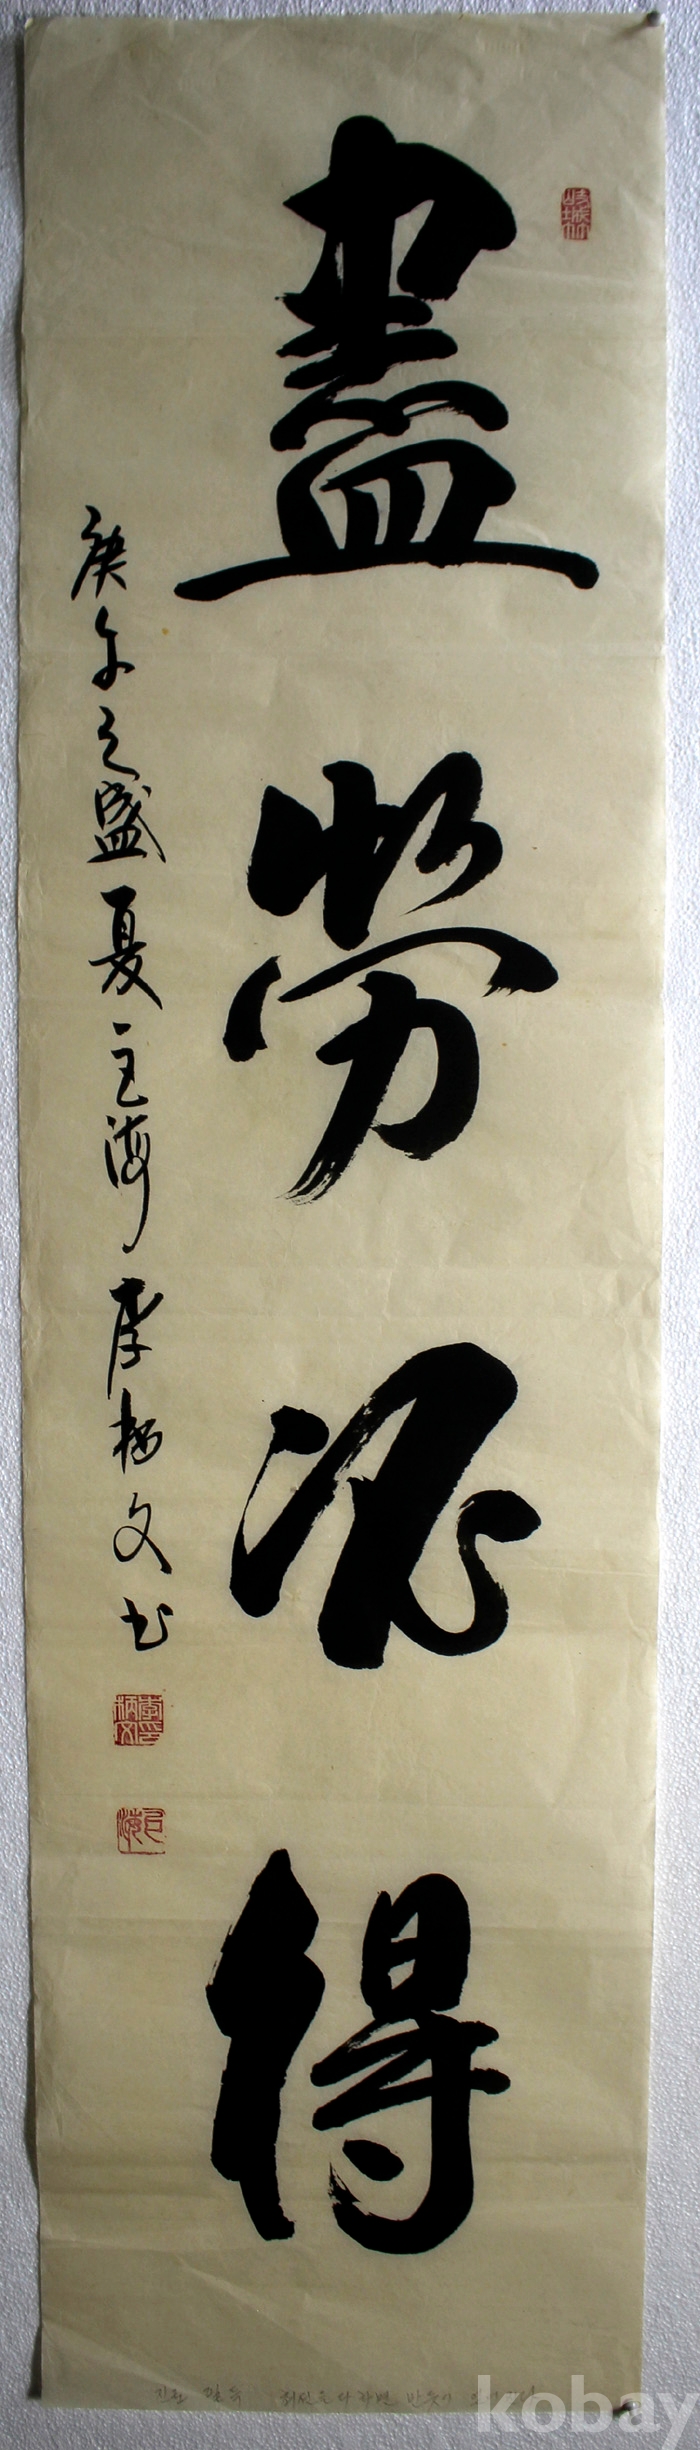 盡勞必得
庚午之盛夏 巨海 李柄文 书
kobay